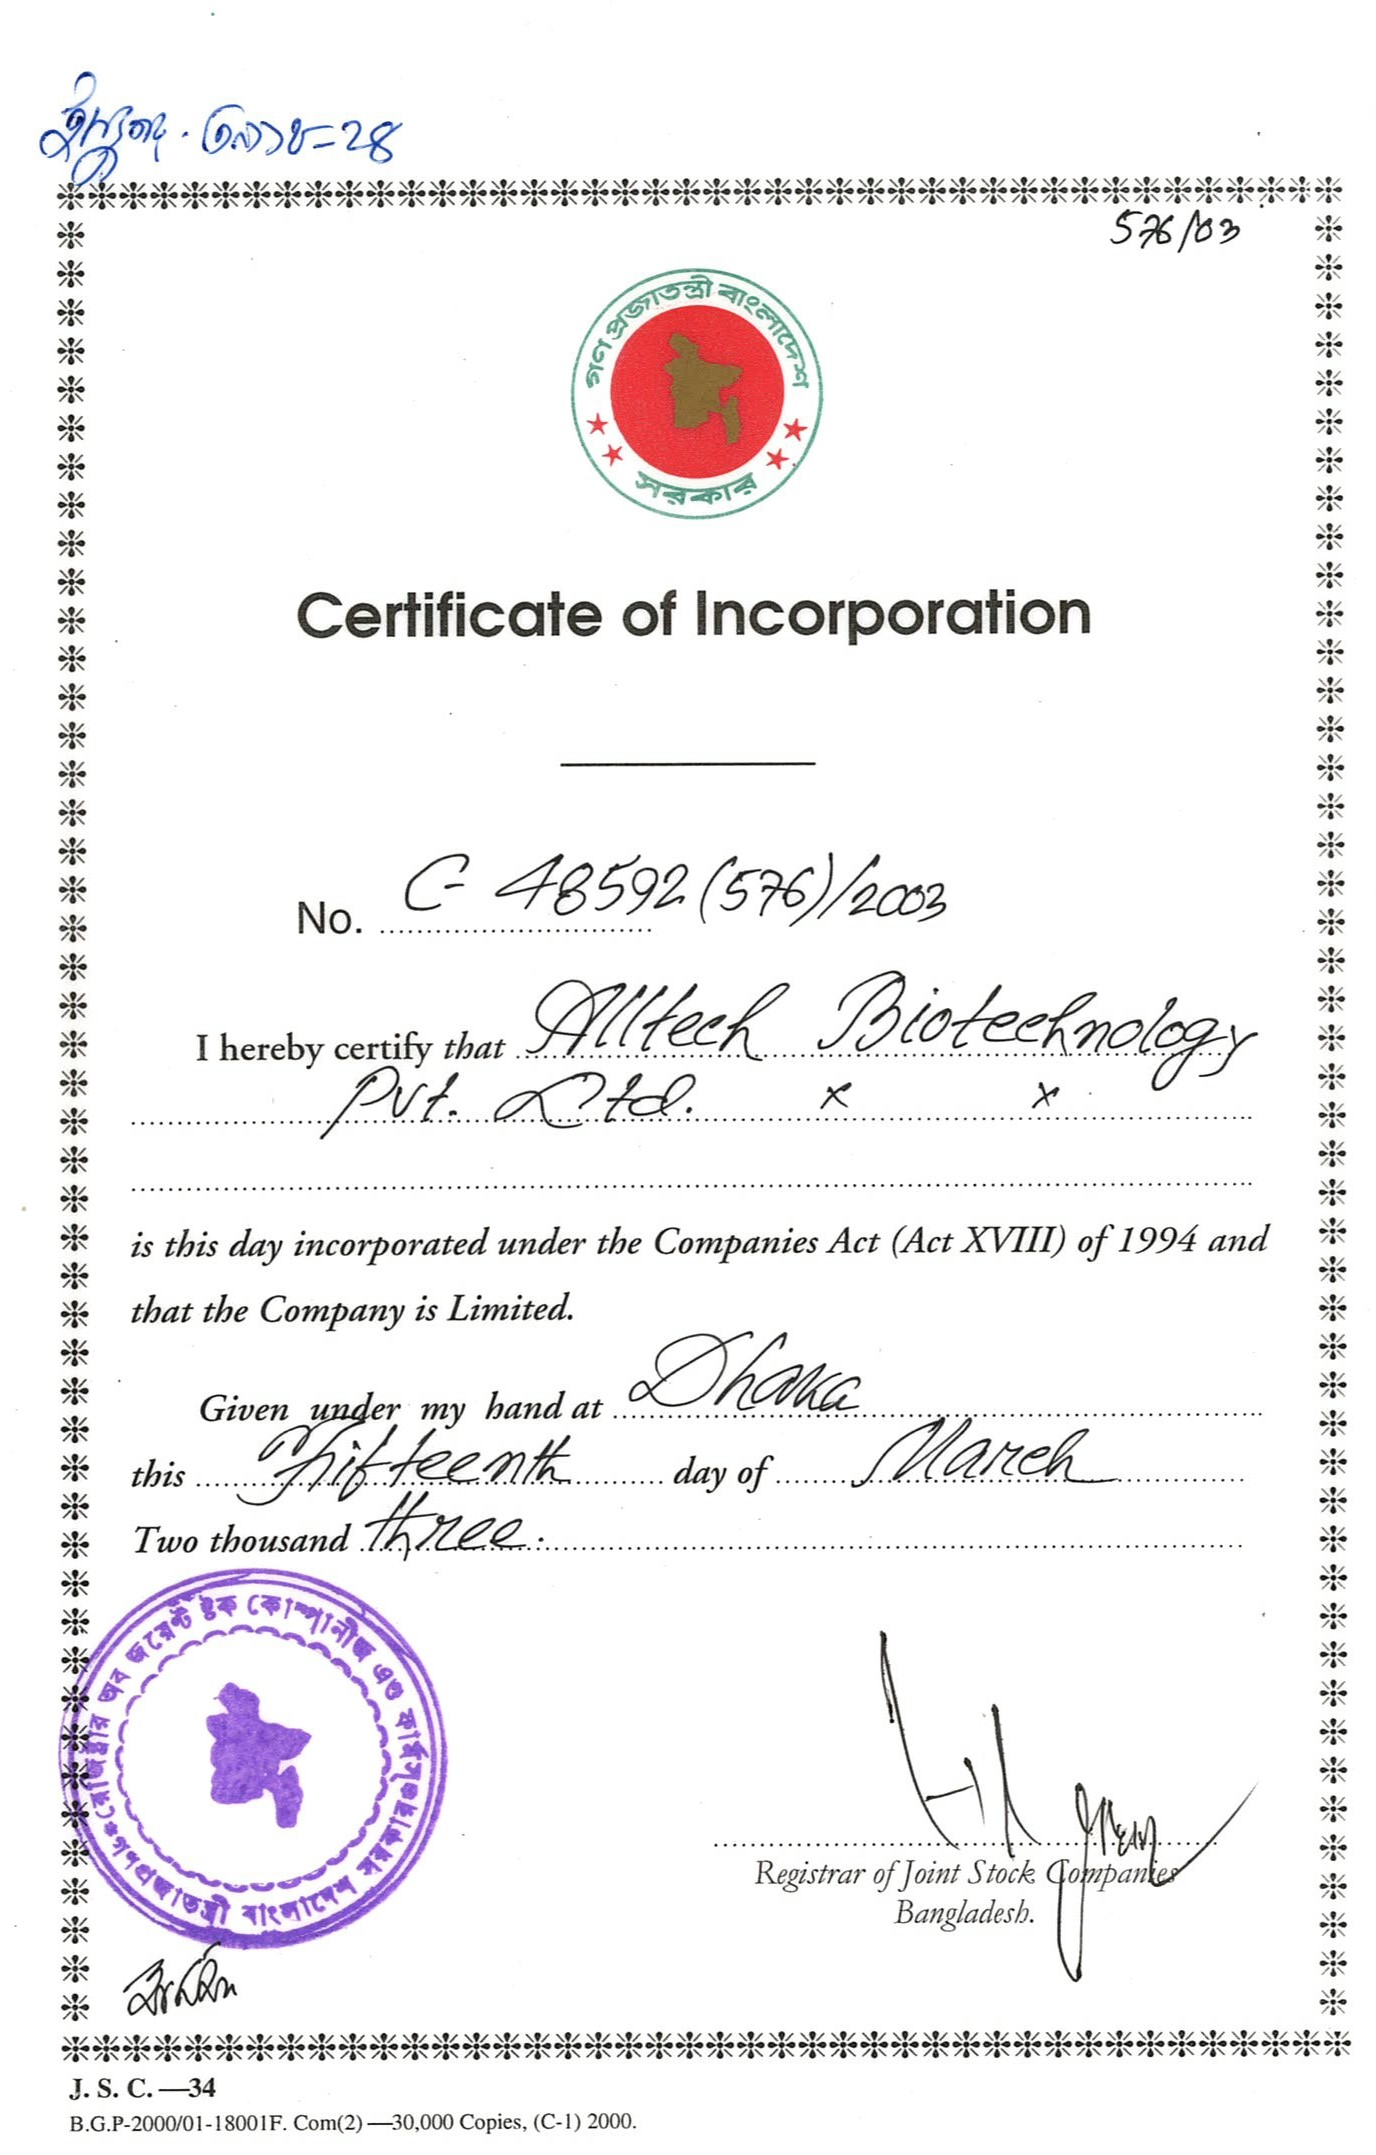 576/03
গণ প্রজাতন্ত্রী বাংলাদেশ
সরকার
Certificate of Incorporation
No. C- 48592 (576)/2003
I hereby certify that Alltech Biotechnology
Pvt. Ltd. x x
is this day incorporated under the Companies Act (Act XVIII) of 1994 and
that the Company is Limited.
Given under my hand at Dhaka
this Fifteenth day of March
Two thousand three.
রেজিষ্ট্রার অব জয়েন্ট ষ্টক কোম্পানীজ এণ্ড ফার্মস্
গণপ্রজাতন্ত্রী বাংলাদেশ সরকার
Registrar of Joint Stock Companies
Bangladesh.
J. S. C. —34
B.G.P-2000/01-18001F. Com(2) —30,000 Copies, (C-1) 2000.